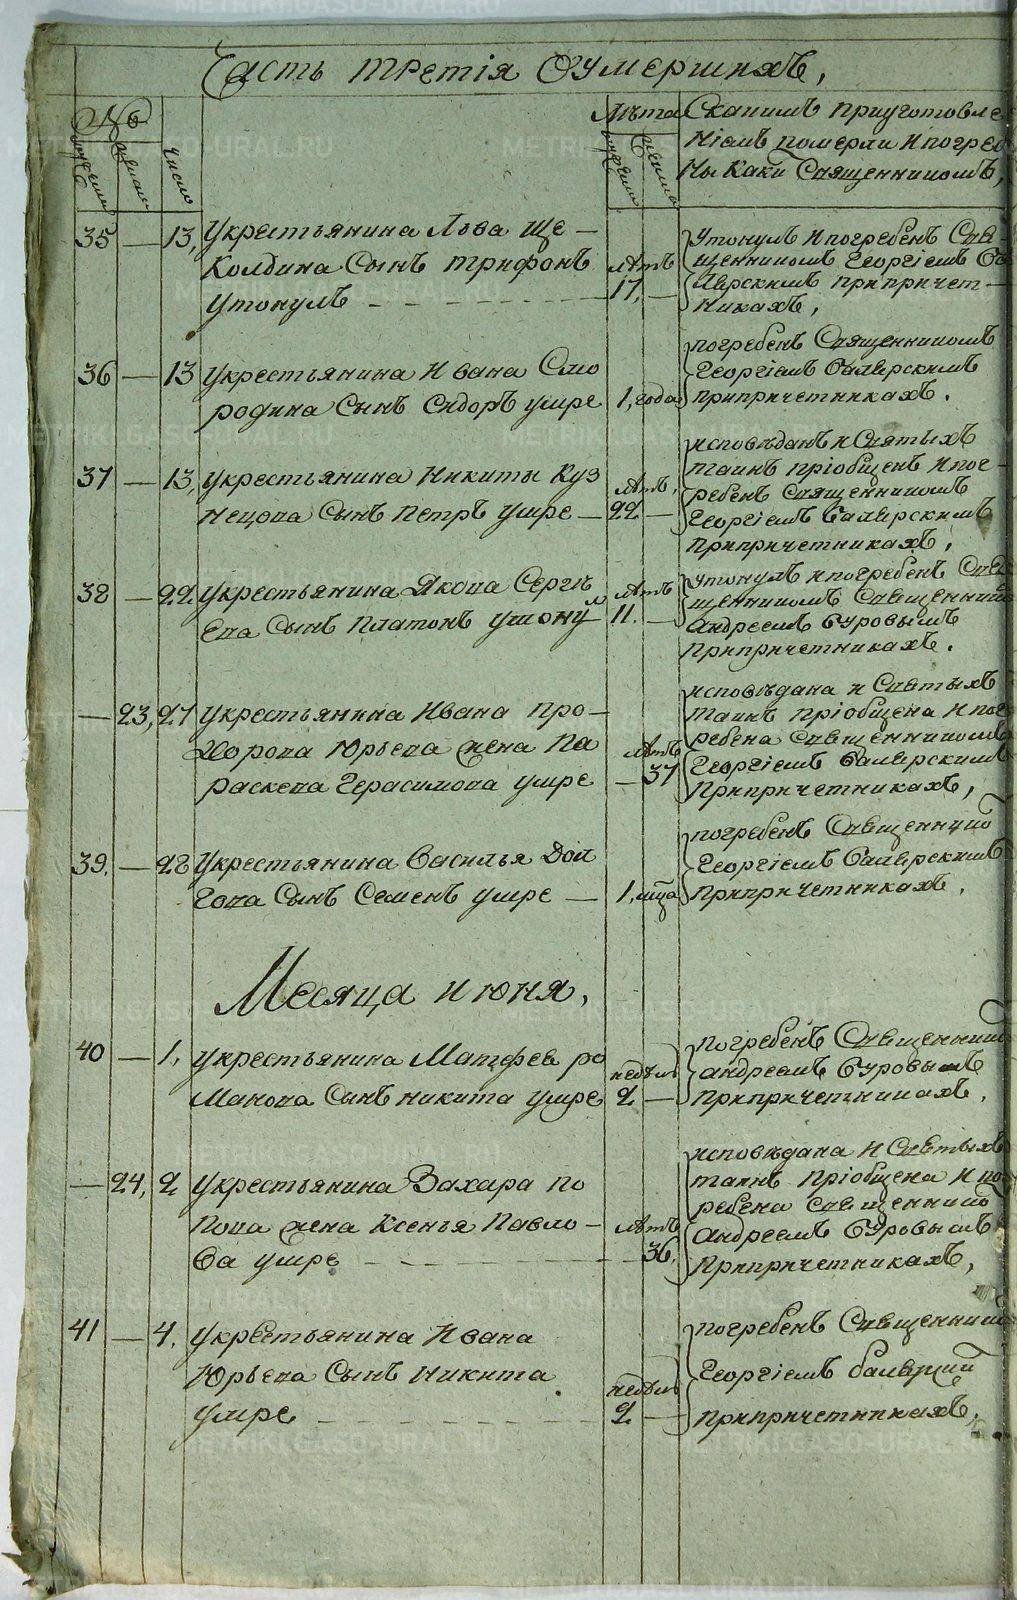 Часть третія Оумершихъ,
№
мужеска
женска
число
Лѣта
мужеска
женска
Скакимъ приуготовле
ніемъ померли и погребе
ны Каки Священникомъ,
35 — 13, Укрестьянина Льва Ще —
Колдина Сынъ трифонъ
утонулъ
лѣтъ
17, —
утонулъ и погребенъ Свя
щенникомъ Георгіемъ
лярскимъ припричет —
никахъ,
36 — 13 Укрестьянина Ивана Смо
родина Сынъ Сидоръ умре
1, года
погребенъ Священникомъ
Георгіемъ Балярскимъ
припричетникахъ.
37 — 13, Укрестьянина Никиты Куз
нецова Сынъ Петръ умре —
лѣтъ,
22 —
исповѣданъ и Святыхъ
таинъ пріобщенъ и пог —
ребенъ Священникомъ
Георгіемъ Балярскимъ
припричетникахъ,
38 — 22 Укрестьянина Якова Сергѣ
ева Сынъ Платонъ утонулъ
лѣтъ
11. —
утонулъ и погребенъ Свя
щенникомъ Священник
Андреемъ Суровымъ
припричетникахъ.
— 23, 27 Укрестьянина Ивана Про —
хорова Юрьева жена Па
раскева Герасимова умре
лѣтъ
— 37
исповѣдана и Святыхъ
таинъ пріобщена и пог
ребена Священникомъ
Георгіемъ Балярскимъ
припричетникахъ,
39. — 28 Укрестьянина Василья Дол
гова Сынъ Семенъ умре —
1, мца
погребенъ Священнико
Георгіемъ Балярскимъ
припричетникахъ.
Месяца июня,
40 — 1, Укрестьянина Матфея ро
манова Сынъ никита умре
недѣль
2 —
погребенъ Священник
андреемъ Суровымъ
припричетникахъ.
— 24, 2 Укрестьянина Захара по
пова жена Ксенья Павло —
ва умре
лѣтъ
— 36,
исповѣдана и Святыхъ
таинъ пріобщена и по
ребена Священнико
Андреемъ Суровымъ
припричетникахъ,
41 — 4, Укрестьянина Ивана
Юрьева Сынъ никита
умре
недѣль
2 —
погребенъ Священник
Георгіемъ
припричетникахъ,
METRIKI.GASO-URAL.RU